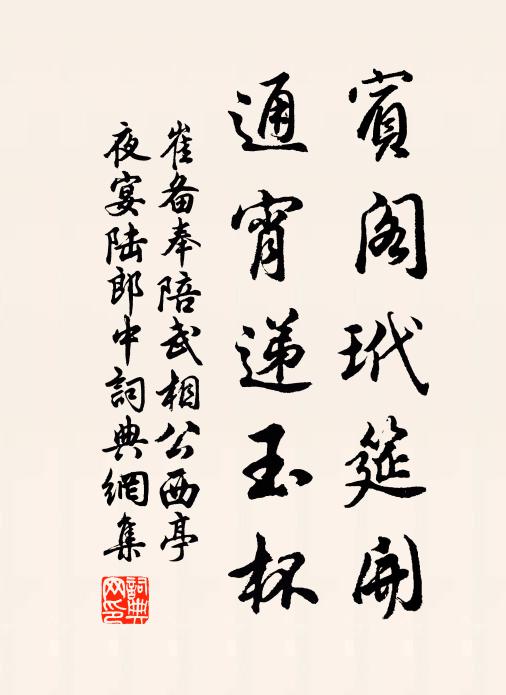 賓閣玳筵開
通宵遞玉杯
崔备奉陪武相公西亭
夜宴陆郎中詞典網集
詞典網印